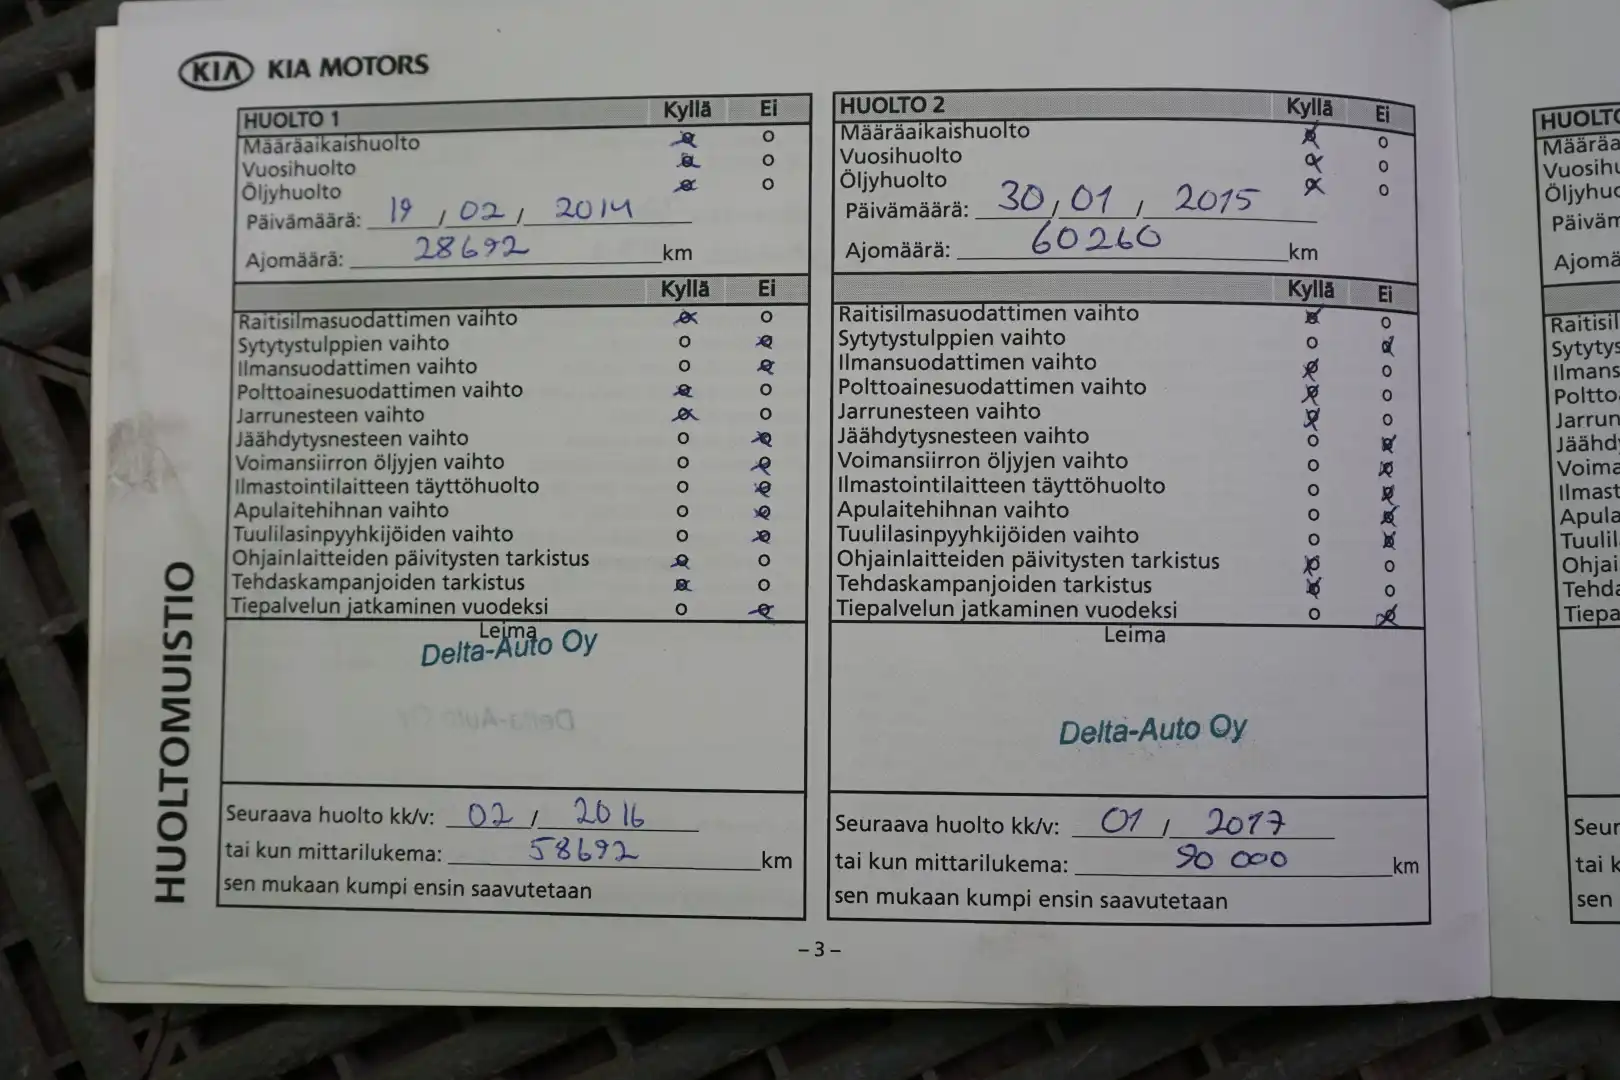 KIA KIA MOTORS
HUOLTOMUISTIO
HUOLTO 1 Kyllä Ei
Määräaikaishuolto
Vuosihuolto
Öljyhuolto
Päivämäärä: 19 / 02 / 2014
Ajomäärä: 28692 km
Kyllä Ei
Raitisilmasuodattimen vaihto
Sytytystulppien vaihto
Ilmansuodattimen vaihto
Polttoainesuodattimen vaihto
Jarrunesteen vaihto
Jäähdytysnesteen vaihto
Voimansiirron öljyjen vaihto
Ilmastointilaitteen täyttöhuolto
Apulaitehihnan vaihto
Tuulilasinpyyhkijöiden vaihto
Ohjainlaitteiden päivitysten tarkistus
Tehdaskampanjoiden tarkistus
Tiepalvelun jatkaminen vuodeksi
Leima
Delta-Auto Oy
Seuraava huolto kk/v: 02 / 2016
tai kun mittarilukema: 58692 km
sen mukaan kumpi ensin saavutetaan
HUOLTO 2 Kyllä Ei
Määräaikaishuolto
Vuosihuolto
Öljyhuolto
Päivämäärä: 30 / 01 / 2015
Ajomäärä: 60260 km
Kyllä Ei
Raitisilmasuodattimen vaihto
Sytytystulppien vaihto
Ilmansuodattimen vaihto
Polttoainesuodattimen vaihto
Jarrunesteen vaihto
Jäähdytysnesteen vaihto
Voimansiirron öljyjen vaihto
Ilmastointilaitteen täyttöhuolto
Apulaitehihnan vaihto
Tuulilasinpyyhkijöiden vaihto
Ohjainlaitteiden päivitysten tarkistus
Tehdaskampanjoiden tarkistus
Tiepalvelun jatkaminen vuodeksi
Leima
Delta-Auto Oy
Seuraava huolto kk/v: 01 / 2017
tai kun mittarilukema: 90 000 km
sen mukaan kumpi ensin saavutetaan
– 3 –